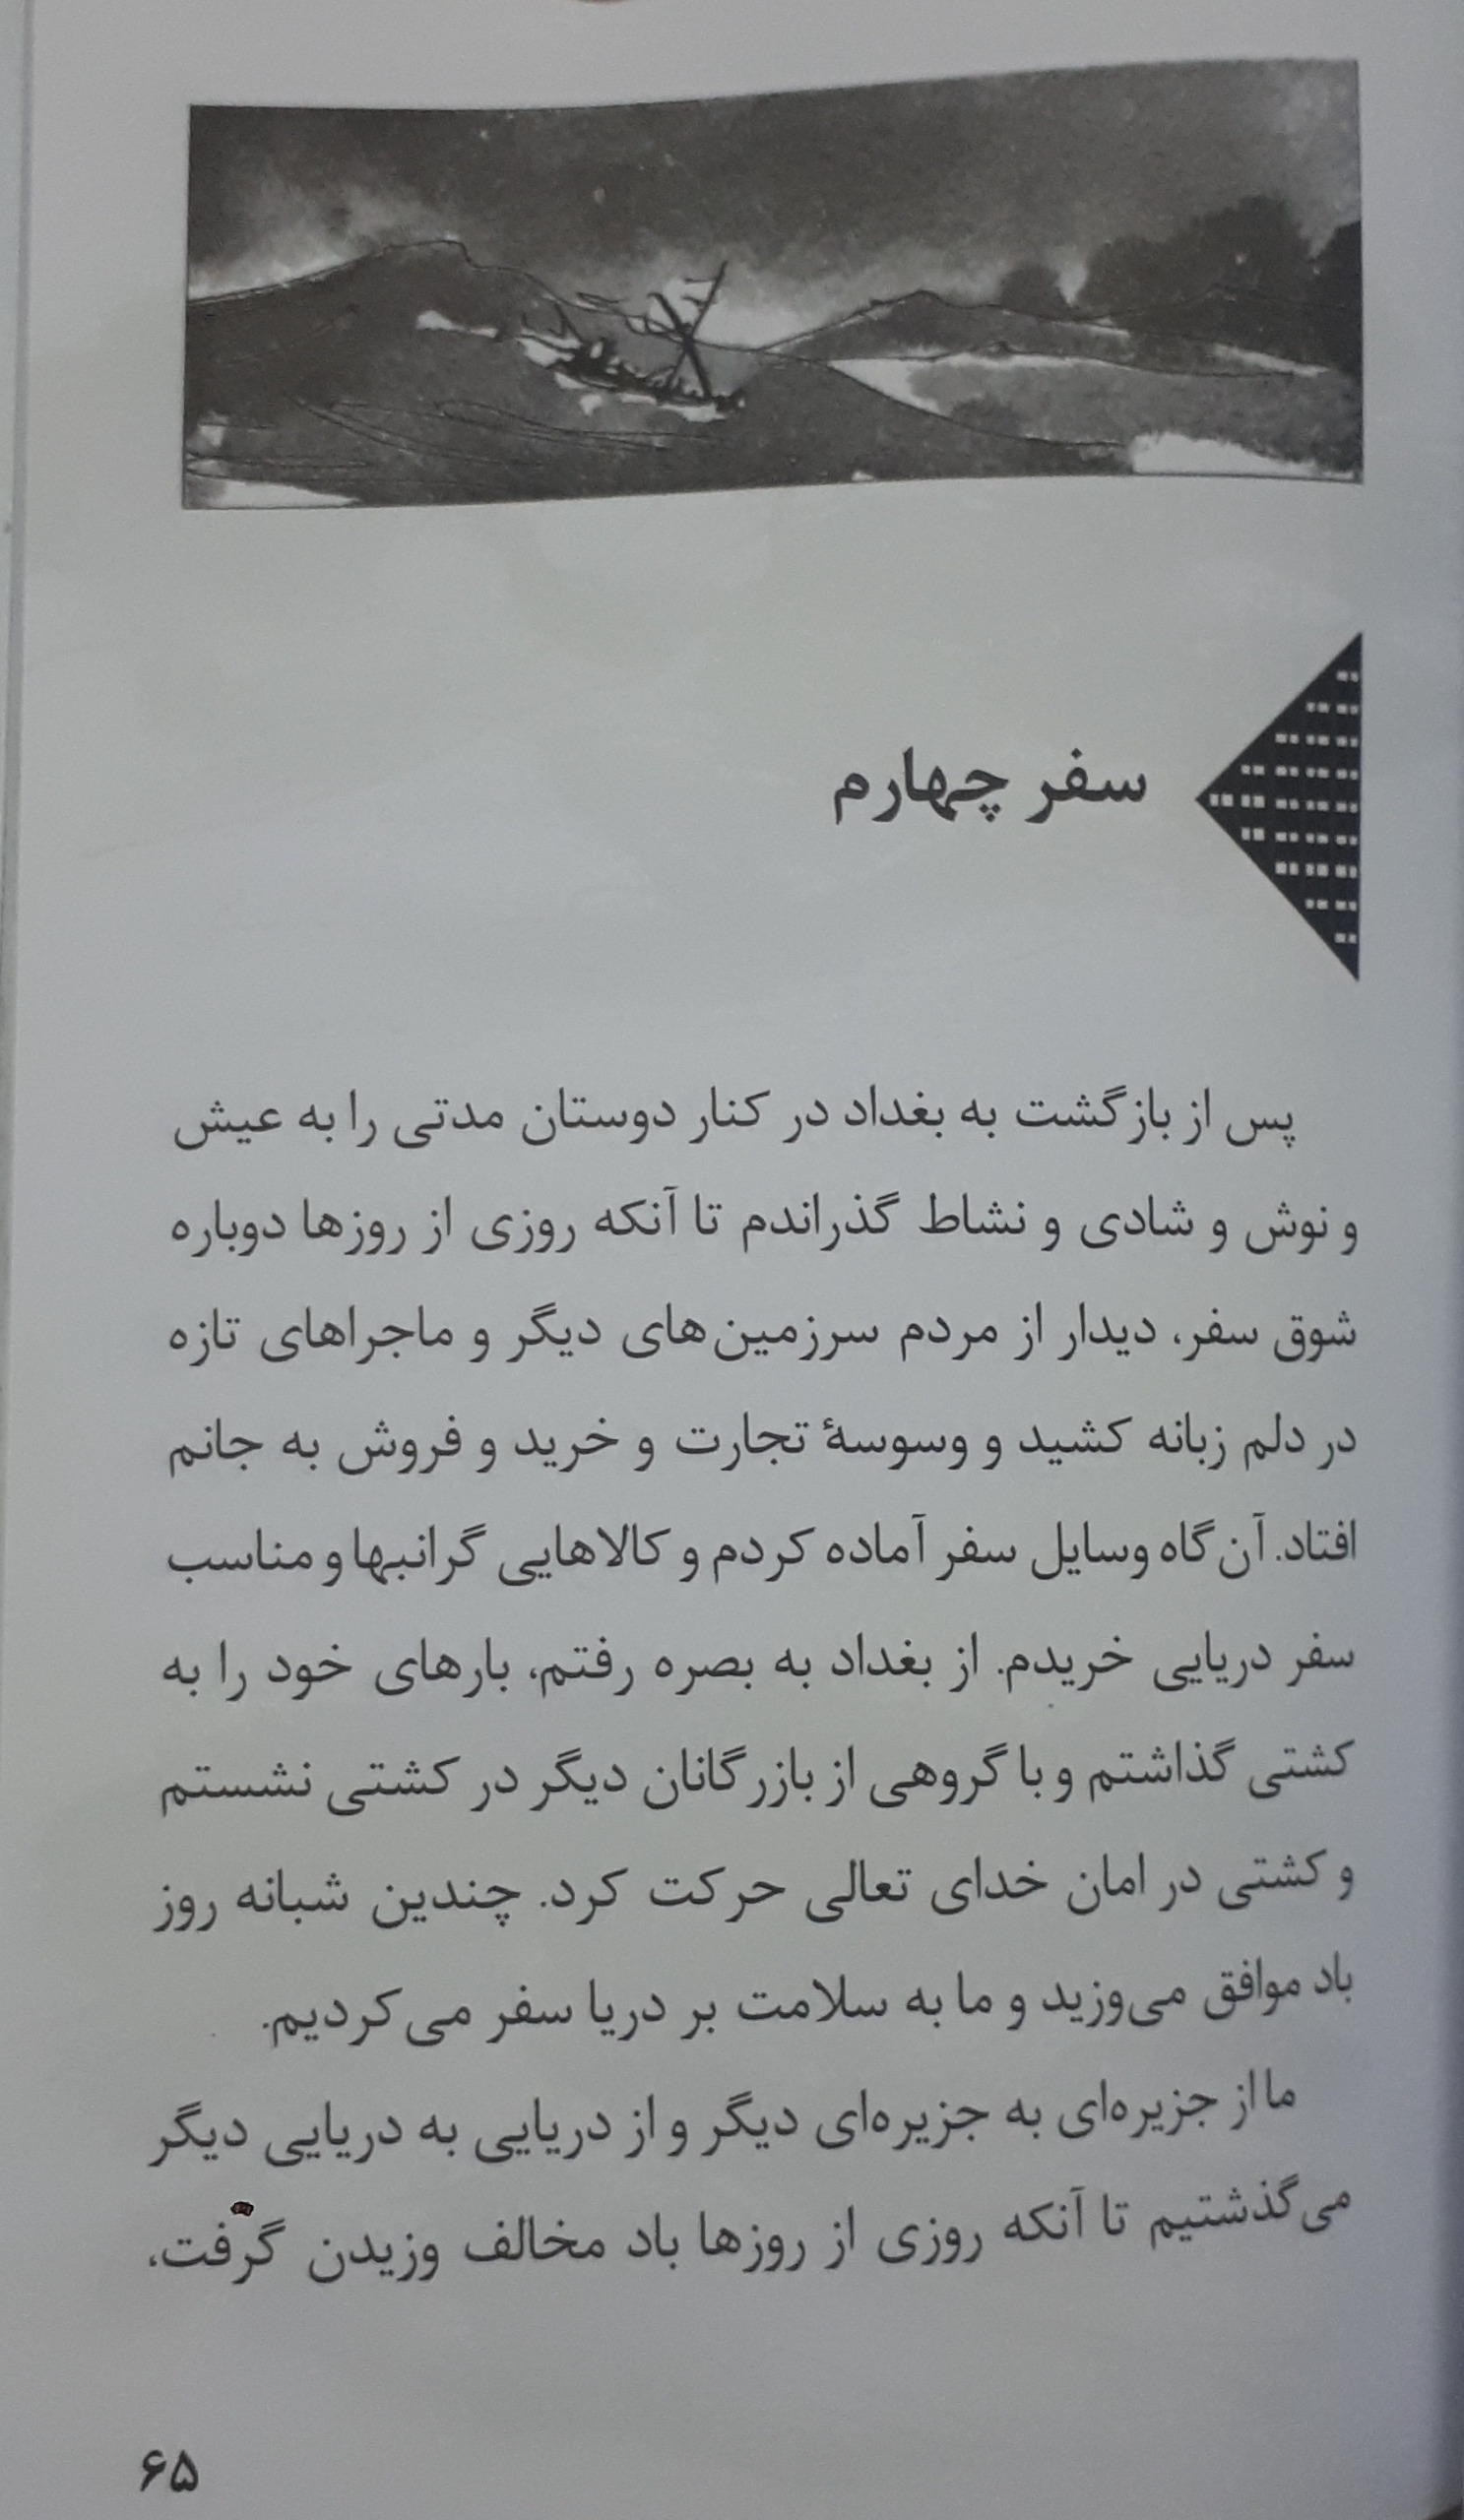 سفر چهارم
پس از بازگشت به بغداد در کنار دوستان مدتی را به عیش
و نوش و شادی و نشاط گذراندم تا آنکه روزی از روزها دوباره
شوق سفر، دیدار از مردم سرزمین‌های دیگر و ماجراهای تازه
در دلم زبانه کشید و وسوسهٔ تجارت و خرید و فروش به جانم
افتاد. آن‌گاه وسایل سفر آماده کردم و کالاهایی گرانبها و مناسب
سفر دریایی خریدم. از بغداد به بصره رفتم، بارهای خود را به
کشتی گذاشتم و با گروهی از بازرگانان دیگر در کشتی نشستم
و کشتی در امان خدای تعالی حرکت کرد. چندین شبانه روز
باد موافق می‌وزید و ما به سلامت بر دریا سفر می‌کردیم.
ما از جزیره‌ای به جزیره‌ای دیگر و از دریایی به دریایی دیگر
می‌گذشتیم تا آنکه روزی از روزها باد مخالف وزیدن گرفت،
۶۵